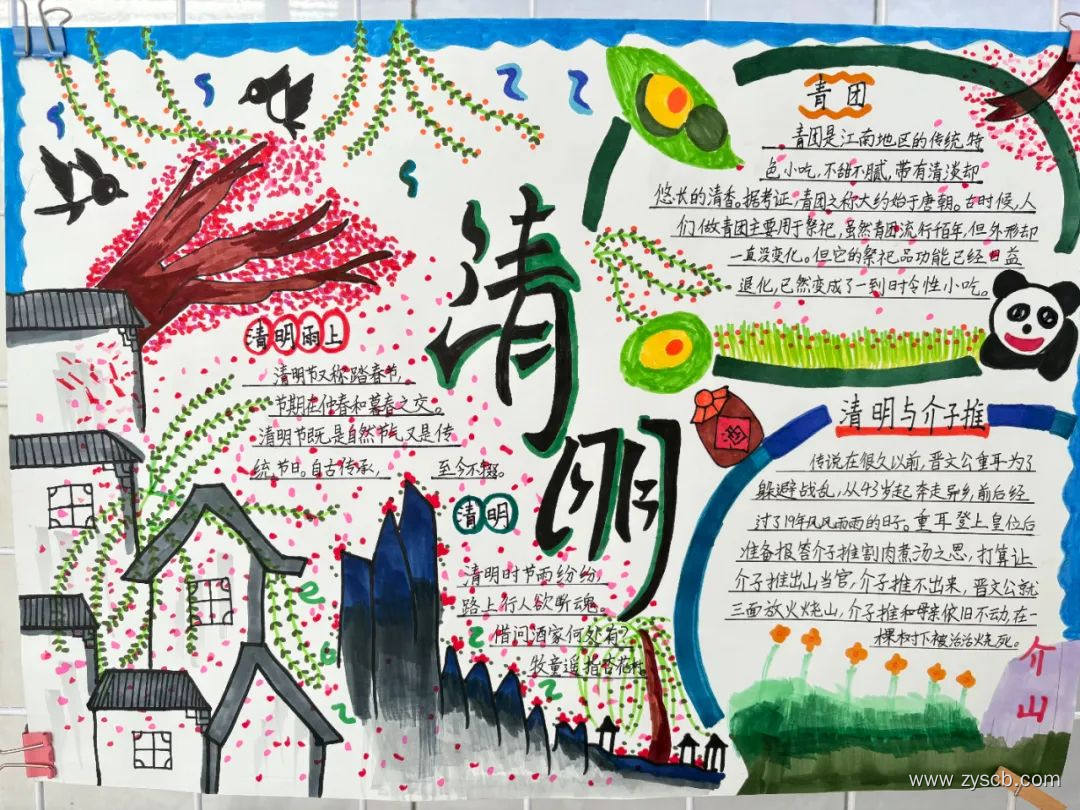 清明
清明雨上
清明节又称踏春节,
节期在仲春和暮春之交。
清明节既是自然节气,又是传
统节日。自古传承, 至今不辍。
清明
清明时节雨纷纷,
路上行人欲断魂。
借问酒家何处有?
牧童遥指杏花村。
青团
青团是江南地区的传统特
色小吃,不甜不腻,带有清淡却
悠长的清香。据考证,青团之称大约始于唐朝。古时候,人
们做青团主要用于祭祀,虽然青团流行百年,但外形却
一直没变化。但它的祭祀品功能已经日益
退化,已然变成了一到时令性小吃。
清明与介子推
传说在很久以前,晋文公重耳为了
躲避战乱,从43岁起奔走异乡,前后经
过了19年风风雨雨的日子。重耳登上皇位后
准备报答介子推割肉煮汤之恩,打算让
介子推出山当官,介子推不出来,晋文公就
三面放火烧山,介子推和母亲依旧不动,在一
棵树下被活活烧死。
介
山
www.zyscb.com